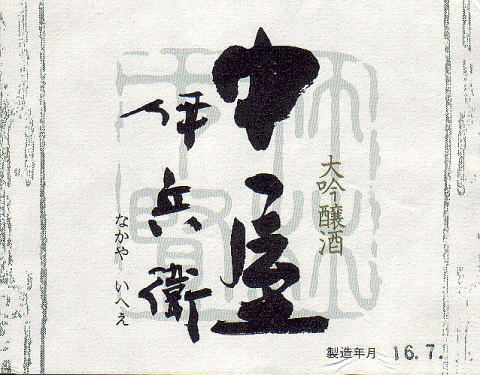 中屋
伊兵衛
なかや いへえ
大吟醸酒
製造年月 16.7.